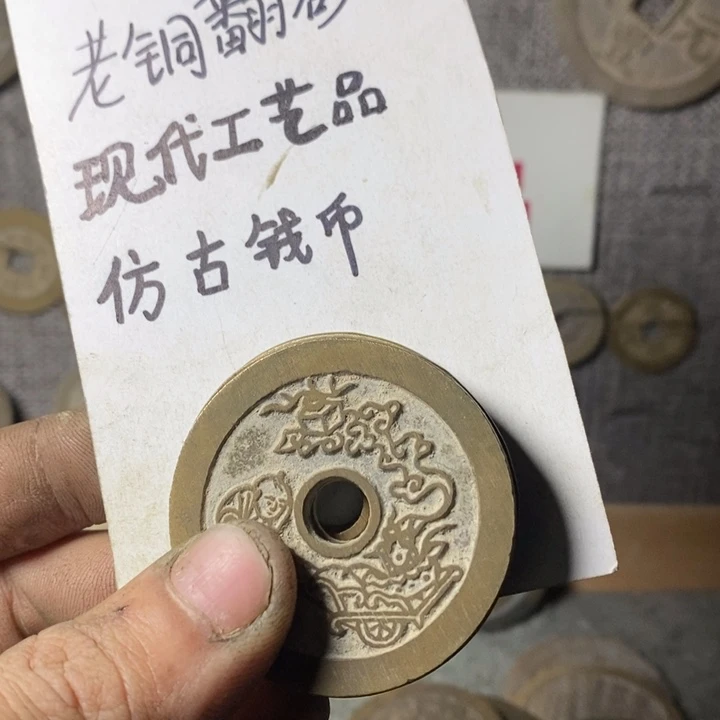 老铜翻砂
现代工艺品
仿古钱币